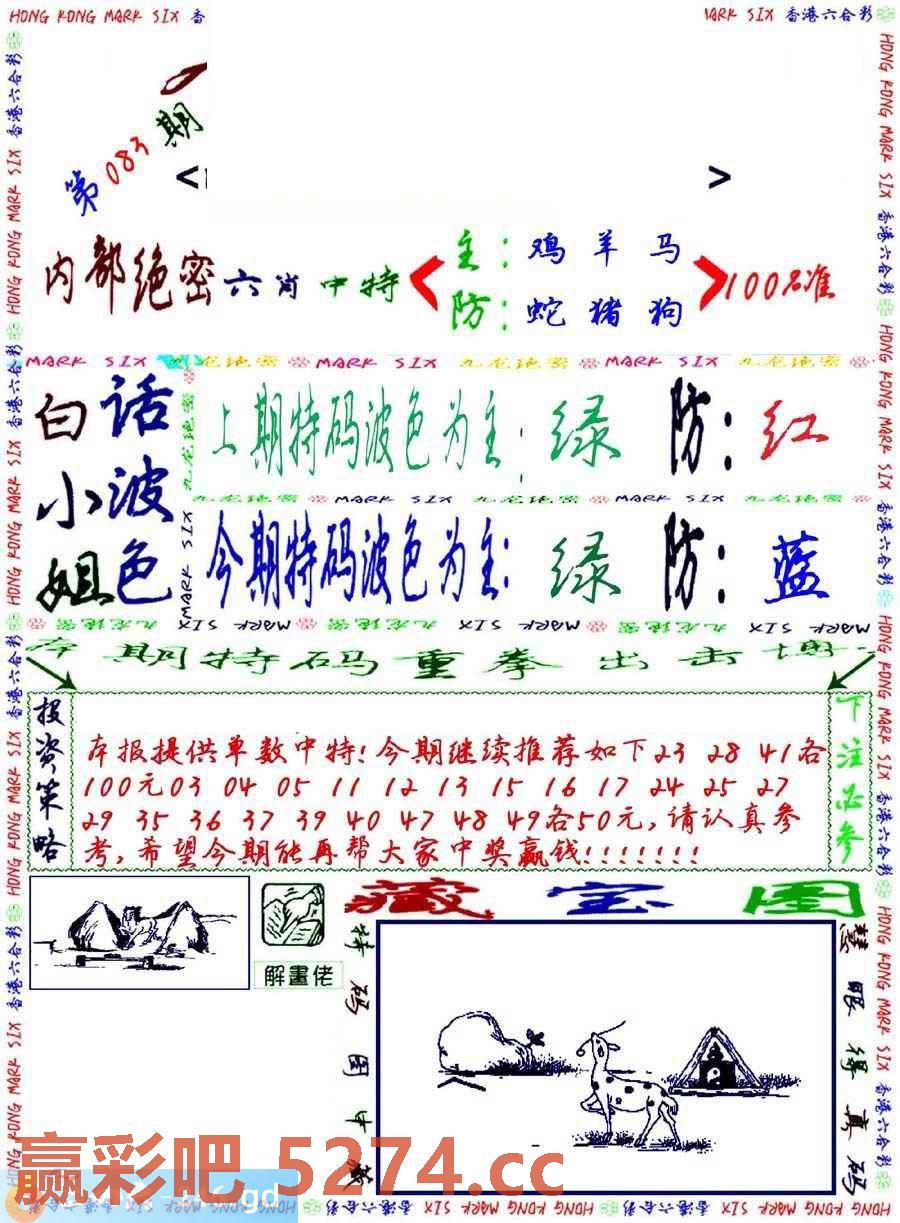 HONG KONG MARK SIX 香
MARK SIX 香港六合彩
第083期
<
>
内部绝密六肖中特
主:鸡羊马
防:蛇猪狗
100%准
MARK SIX 九龙地密 MARK SIX 九龙地密 MARK SIX 九龙地密
白话
小波
姐色
上期特码波色为主:绿 防:红
九龙地密 MARK SIX 九龙地密 MARK SIX 九龙地密
今期特码波色为主:绿 防:蓝
九龙地密 MARK SIX 九龙地密 MARK SIX 九龙地密 MARK SIX
本期特码重拳出击
投资策略
本报提供单数中特!今期继续推荐如下23 28 41各
100元03 04 05 11 12 13 15 16 17 24 25 27
29 35 36 37 39 40 47 48 49各50元,请认真参
考,希望今期能再帮大家中奖赢钱!!!!!!!
下注必参
解畫佬
藏宝图
特码图中藏
慧眼得真码
赢彩吧 5274.cc
HONG KONG MARK SIX 香港六合彩